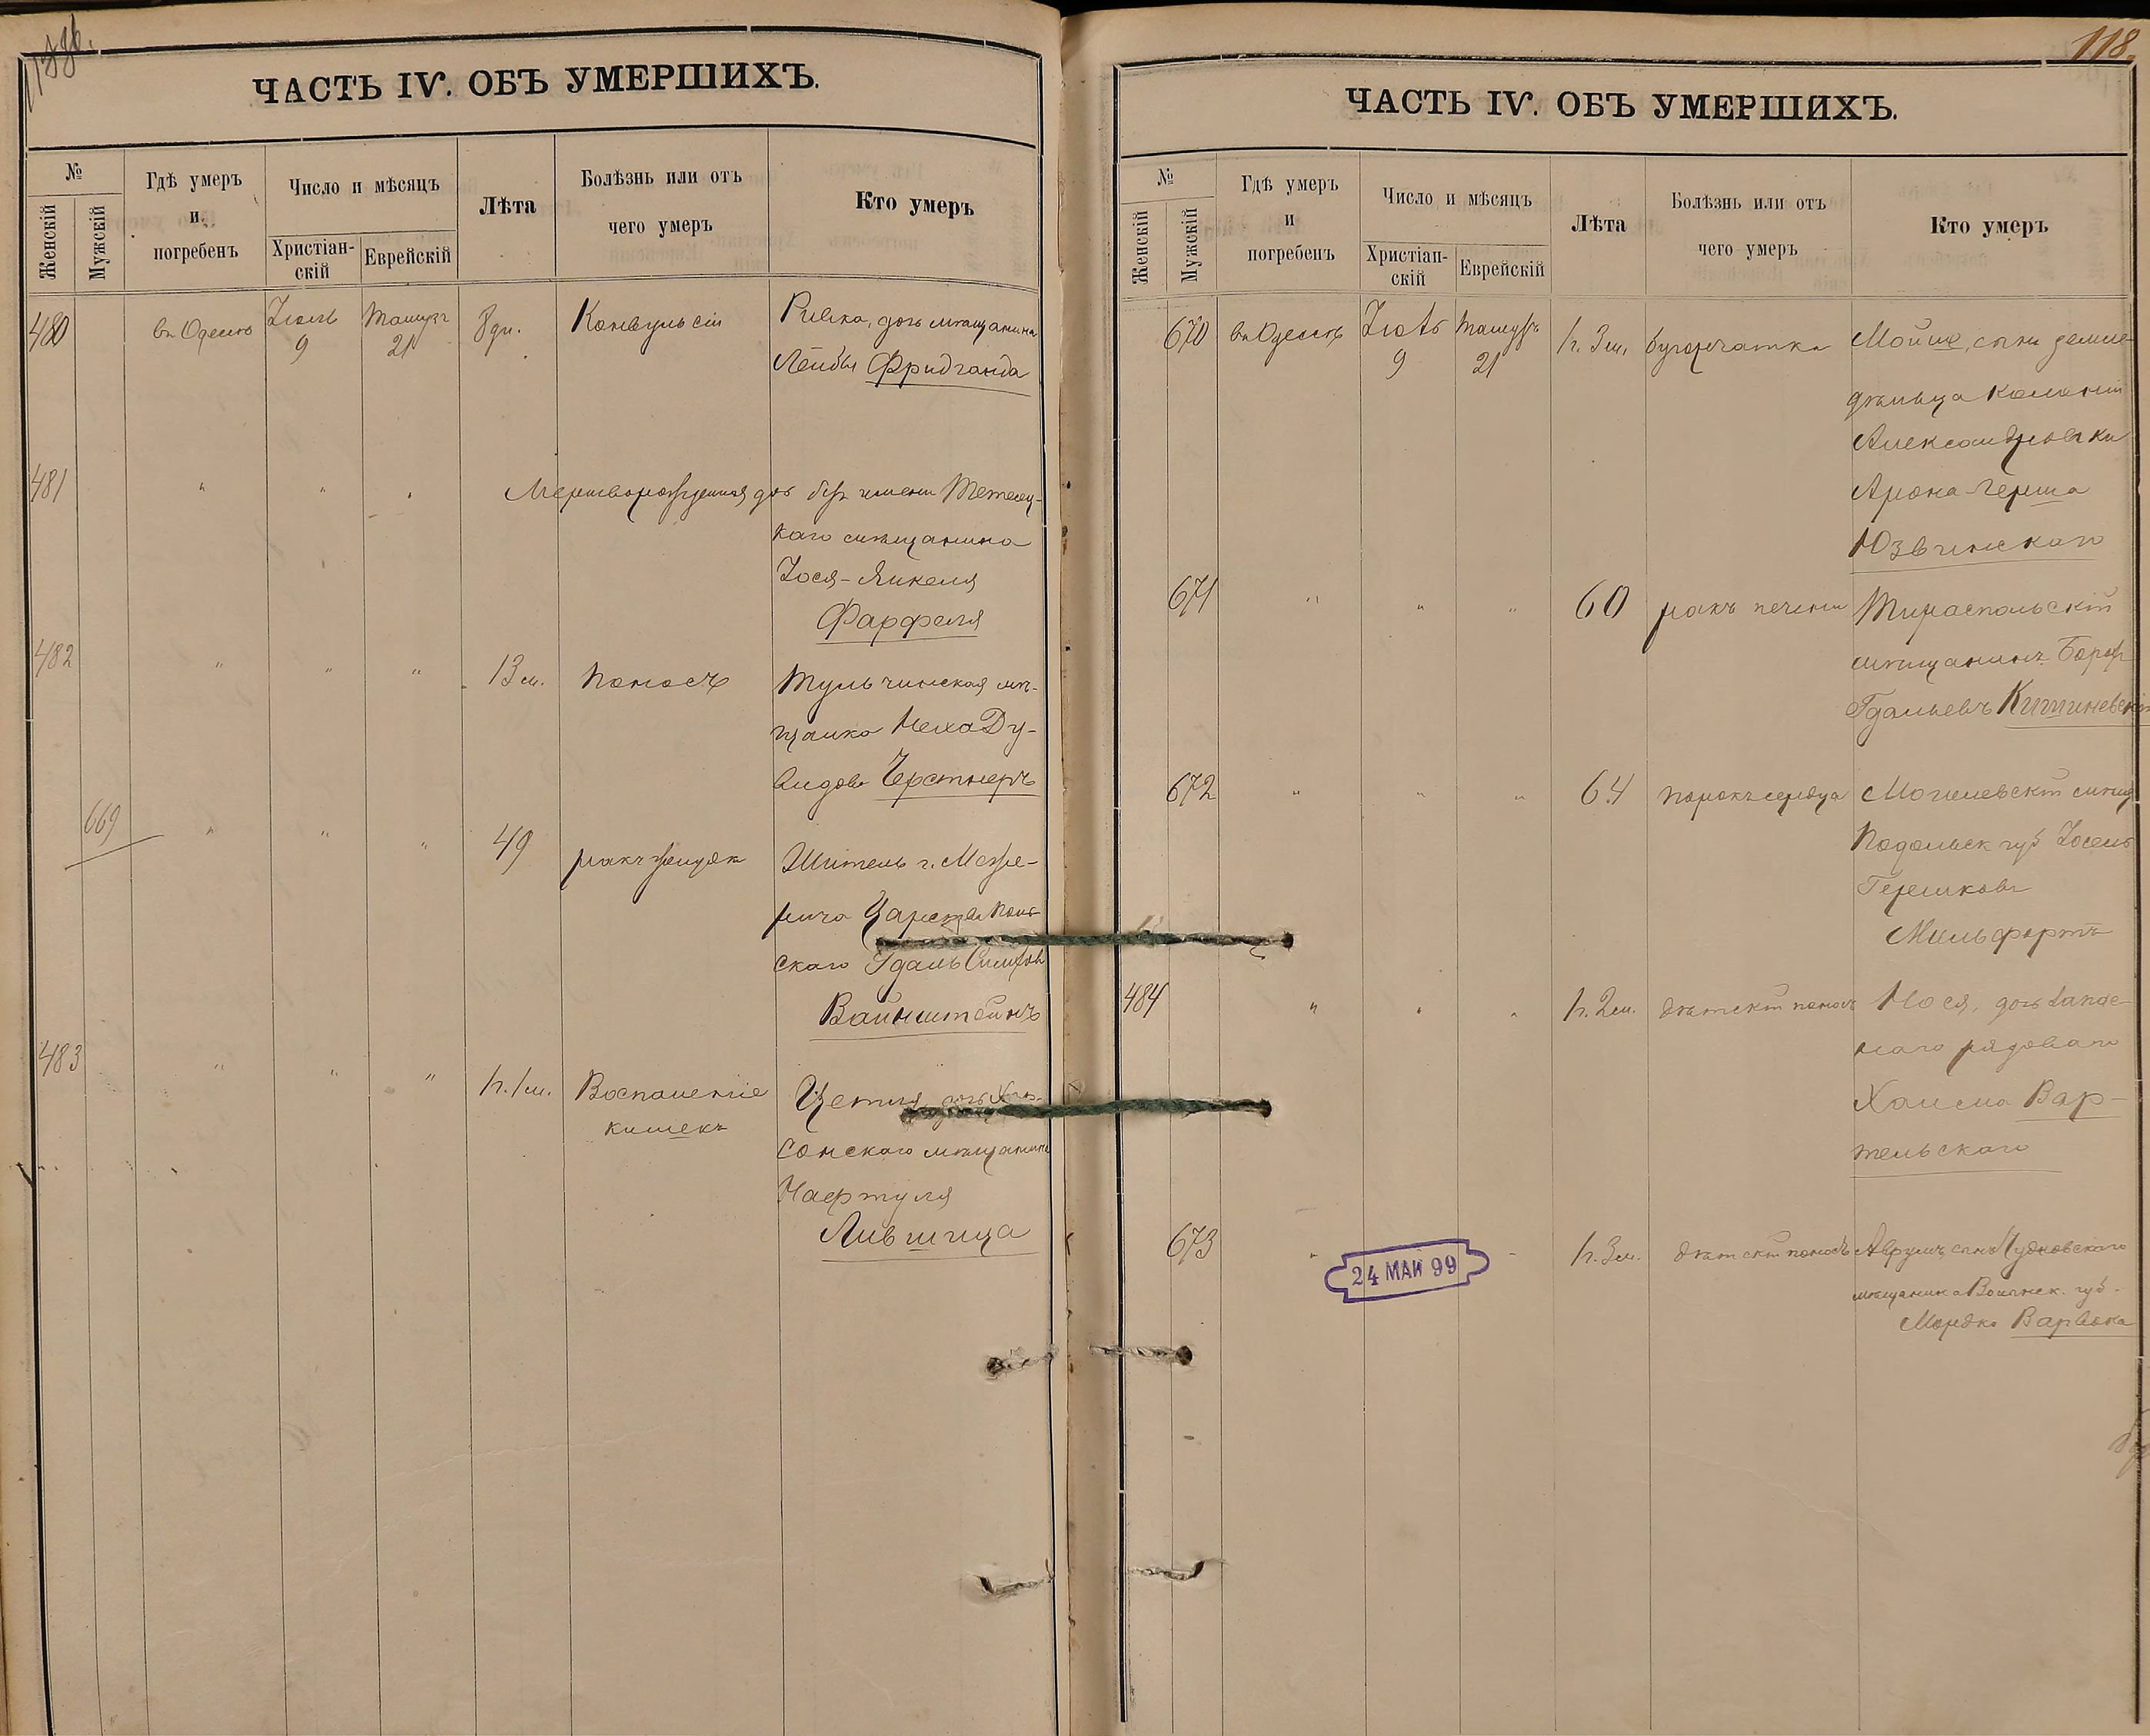 ЧАСТЬ IV. ОБЪ УМЕРШИХЪ.
№
Женскій
Мужскій
Гдѣ умеръ
и
погребенъ
Число и мѣсяцъ
Христіан-
скій
Еврейскій
Лѣта
Болѣзнь или отъ
чего умеръ
Кто умеръ
480 въ Одессѣ Іюль 9 Тамузъ 21 8 дн. Конвульсіи Ривка, дочь мѣщанина
Лейбы Фридганда
481 " " " Мертворожденная дочь безъ имени
каго мѣщанина
Іося-Янкеля
Фарфеля
482 " " " 13 м. Поносъ Тульчинская мѣ-
щанка Неха Ду-
видова
669 " " " 49 ракъ желудка Житель г. Мезре-
рича Царства Поль
скаго Гдаль
Вайнштейнъ
483 " " " 1 г. 1 м. Воспаленіе
кишекъ
Цетля, дочь Хер-
сонскаго мѣщанина
Нафтуля
Лившица
118.
ЧАСТЬ IV. ОБЪ УМЕРШИХЪ.
№
Женскій
Мужскій
Гдѣ умеръ
и
погребенъ
Число и мѣсяцъ
Христіан-
скій
Еврейскій
Лѣта
Болѣзнь или отъ
чего умеръ
Кто умеръ
670 въ Одессѣ Іюль 9 Тамузъ 21 1 г. 3 м. бугорчатка Мойше, сынъ земле-
дѣльца колоніи
Александровки
Арона-Герша
Юзвинскаго
671 " " " 60 ракъ печени Тираспольскій
мѣщанинъ Борух
Гдальевъ Кишиневскій
672 " " " 64 порокъ сердца Могилевскій мѣщ
Подольск губ Іосель
Гершковъ
Мильфортъ
484 " " " 1 г. 2 м. дѣтскій поносъ Нося, дочь запас-
наго рядоваго
Хаима Вар-
тельскаго
673 " " 1 г. 3 м. дѣтскій поносъ Аврумъ, сынъ Чудновскаго
мѣщанина Волынск. губ.
Мордко Варвака
24 МАЙ 99